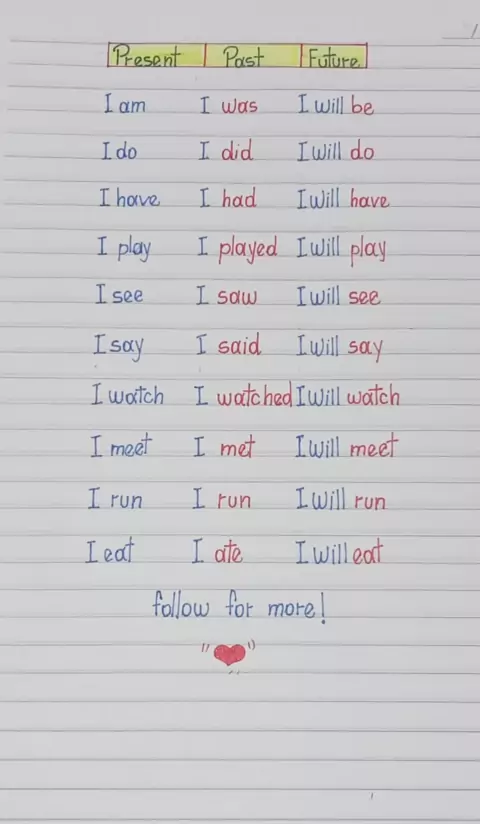 Present Past Future
I am I was I will be
I do I did I will do
I have I had I will have
I play I played I will play
I see I saw I will see
I say I said I will say
I watch I watched I will watch
I meet I met I will meet
I run I run I will run
I eat I ate I will eat
follow for more!